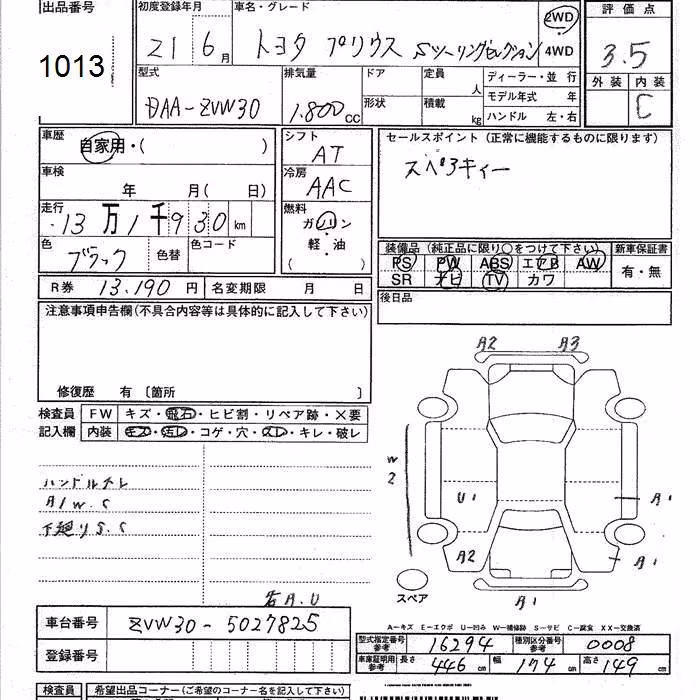 出品番号
1013
初度登録年月
21 6月
車名・グレード
トヨタ プリウス Sツーリングセレクション
2WD
4WD
評価点
3.5
外装 内装
C
型式
DAA-ZVW30
排気量
1.800cc
ドア
形状
定員
人
積載
kg
ディーラー・並行
モデル年式 年
ハンドル 左・右
車歴
自家用・( )
シフト
AT
セールスポイント (正常に機能するものに限ります)
スペアキィー
車検
年 月( 日)
冷房
AAC
走行
13万1千930km
燃料
ガソリン
・
軽・油
( )
色
ブラック
色替
色コード
装備品(純正品に限り○をつけて下さい)
新車保証書
PS PW ABS エアB AW
SR ナビ TV カワ
有・無
R券 13.190円
名変期限 月 日
後日品
注意事項申告欄(不具合内容等は具体的に記入して下さい)
修復歴 有 〔箇所 〕
検査員
記入欄
FW キズ・飛石・ヒビ割・リペア跡・×要
内装 キズ・汚レ・コゲ・穴・スレ・キレ・破レ
A2 A3
W2
U1
A1
A2
A1
A1
ハンドルスレ
A/W.C
下廻りS.C
スペア
A=キズ E=エクボ U=凹み W=補修跡 S=サビ C=腐食 XX=交換済
車台番号 ZVW30-5027825
登録番号
型式指定番号 参考 16294
種別区分番号 参考 0008
車庫証明用 参考 長さ 446cm 幅 174cm 高さ 149cm
検査員
希望出品コーナー(ご希望のコーナー名を記入して下さい)